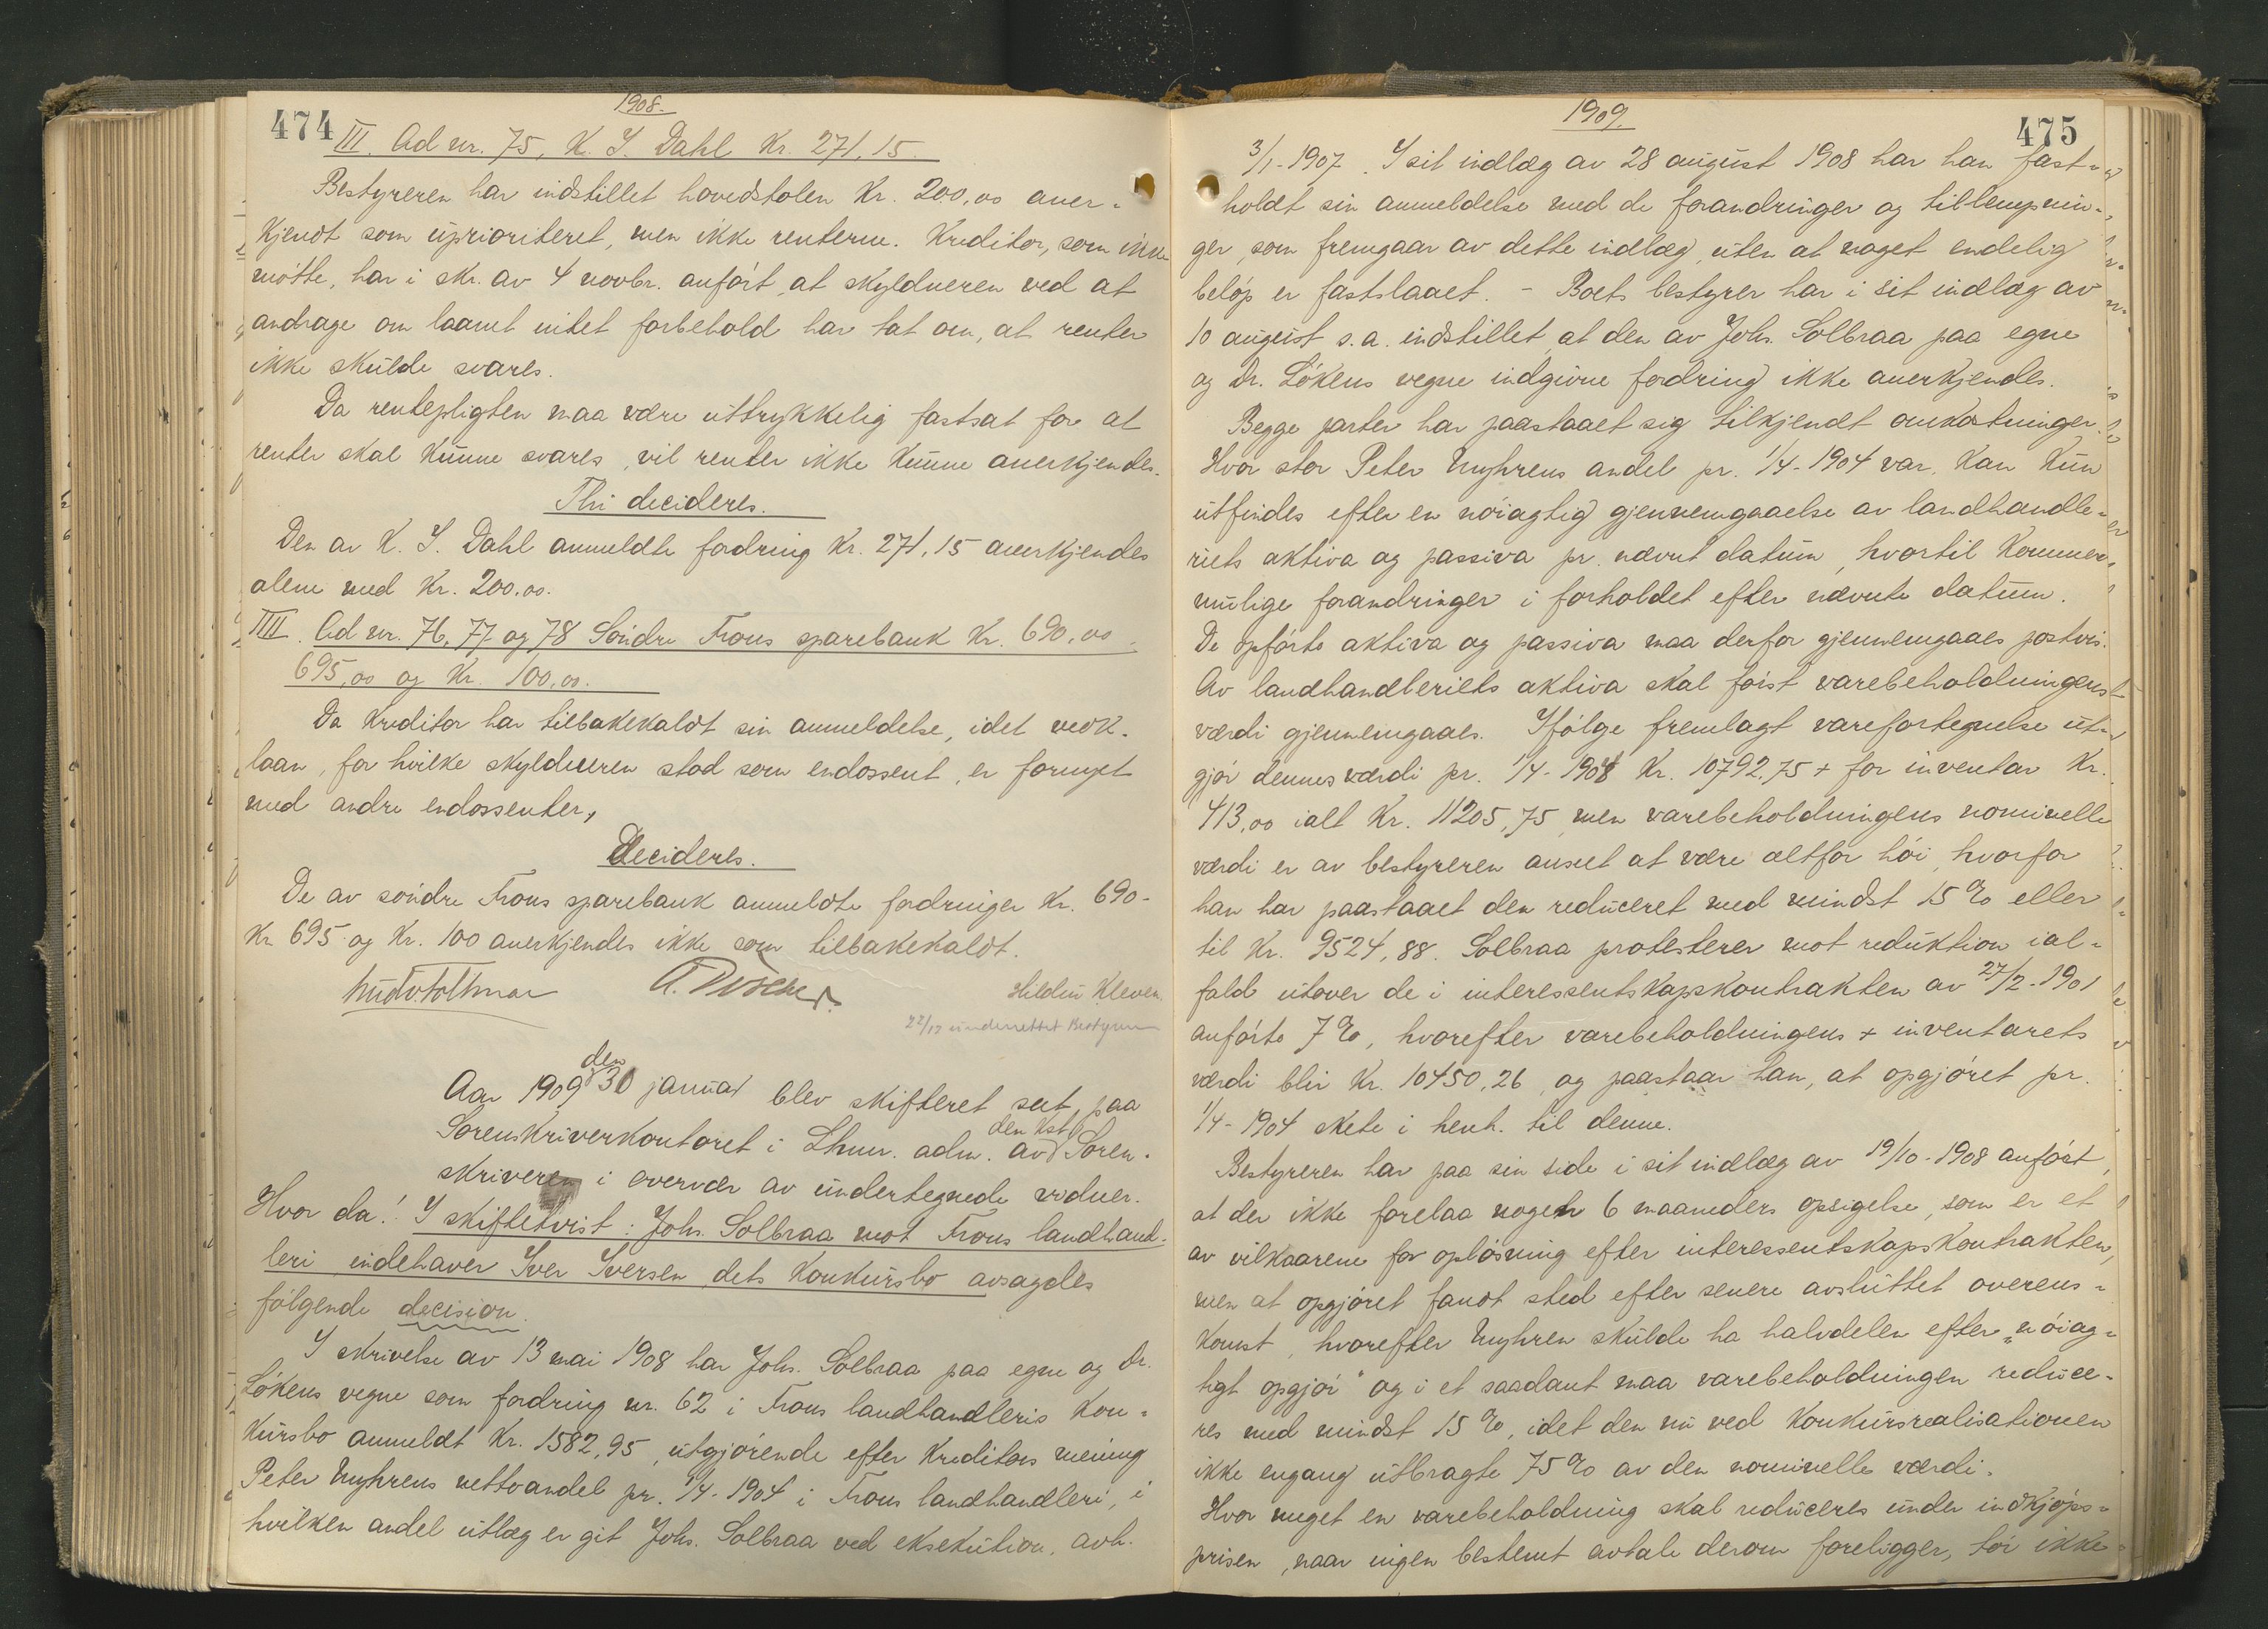 1908.
474
III. Ad nr. 75, K. J. Dahl Kr. 271,15.
Bestyreren har indstillet hovedstolen Kr. 200,00 aner-
kjendt som uprioriteret, men ikke renterne. Kreditor, som ikke
møtte, har i skr. av 4 novbr. anført, at skyldneren ved at
andrage om laanet intet forbehold har tat om, at renter
ikke skulde svares.
Da rentepligten maa være uttrykkelig fastsat for at
renter skal kunne svares, vil renter ikke kunne anerkjendes.
Thi decideres.
Den av K. J. Dahl anmeldte fordring Kr. 271,15 anerkjendes
alene med Kr. 200.00.
IIII. Ad nr. 76, 77 og 78 Søndre Frons sparebank Kr. 690,00
695,00 og Kr. 100,00.
Da kreditor har tilbakekaldt sin anmeldelse, idet vedk.
laan, for hvilke skyldneren stod som endossent, er fornyet
med andre endossenter,
Decideres.
De av søndre Frons sparebank anmeldte fordringer Kr. 690-
Kr 695 og Kr. 100 anerkjendes ikke som tilbakekaldt.
Hildur Kleven
22/12 underrettet Bestyreren
Aar 1909 den 30 januar blev skifteret sat paa
Sorenskriverkontoret i Lhmr. adm. av den kst. Soren-
skriveren i overvær av undertegnede vidner.
Hvor da! I skiftetvist: Johs. Solbraa mot Frons landhand-
leri indehaver Iver Iversen dets konkursbo avsagdes
følgende decision.
I skrivelse av 13 mai 1908 har Johs. Solbraa paa egne og Dr.
Løkens vegne som fordring nr. 62 i Frons landhandleris kon-
kursbo anmeldt Kr. 1582,95, utgjørende efter kreditors mening
Peter Myhrens nettoandel pr. 1/4-1904 i Frons landhandleri, i
hvilken andel utlæg er git Johs. Solbraa ved eksekution, avh.
1909.
475
3/1-1907. I sit indlæg av 28 august 1908 har han fast-
holdt sin anmeldelse med de forandringer og tillempnin-
ger, som fremgaar av dette indlæg, uten at noget endelig
beløp er fastslaaet. - Boets bestyrer har i sit indlæg av
10 august s.a. indstillet, at den av Johs. Solbraa paa egne
og Dr. Løkens vegne indgivne fordring ikke anerkjendes.
Begge parter har paastaaet sig tilkjendt omkostninger.
Hvor stor Peter Myhrens andel pr. 1/4-1904 var, kan kun
utfindes efter en nøiagtig gjennemgaaelse av landhandle-
riets aktiva og passiva pr. nævnt datum, hvortil kommer
mulige forandringer i forholdet efter nævnte datum.
De opførte aktiva og passiva maa derfor gjennemgaaes postvis.
Av landhandleriets aktiva skal først varebeholdningens
værdi gjennemgaaes. Ifølge fremlagt varefortegnelse ut-
gjør dennes værdi pr. 1/4-1904 Kr. 10792,75 + for inventar Kr.
413,00 ialt Kr. 11205,75, men varebeholdningens nominelle
værdi er av bestyreren anseet at være altfor høi, hvorfor
han har paastaaet den reduceret med mindst 15 % eller
til Kr. 9524,88. Solbraa protesterer mot reduktion ial-
fald utover de i interessentskapskontrakten av 27/2-1901
anførte 7 %, hvorefter varebeholdningens + inventarets
værdi blir Kr. 10450,26, og paastaar han, at opgjøret pr.
1/4-1904 skete i henh. til denne.
Bestyreren har paa sin side i sit indlæg av 19/10-1908 anført,
at der ikke forelaa nogen 6 maaneders opsigelse, som er et
av vilkaarene for opløsning efter interessentskapskontrakten,
men at opgjøret fandt sted efter senere avsluttet overens-
komst, hvorefter Myhren skulde ha halvdelen efter „nøiag-
tigt opgjør" og i et saadant maa varebeholdningen reduce-
res med mindst 15 %, idet den nu ved konkursrealisationen
ikke engang utbragte 75 % av den nominelle værdi.
Hvor meget en varebeholdning skal reduceres under indkjøps-
prisen, naar ingen bestemt avtale derom foreligger, tør ikke